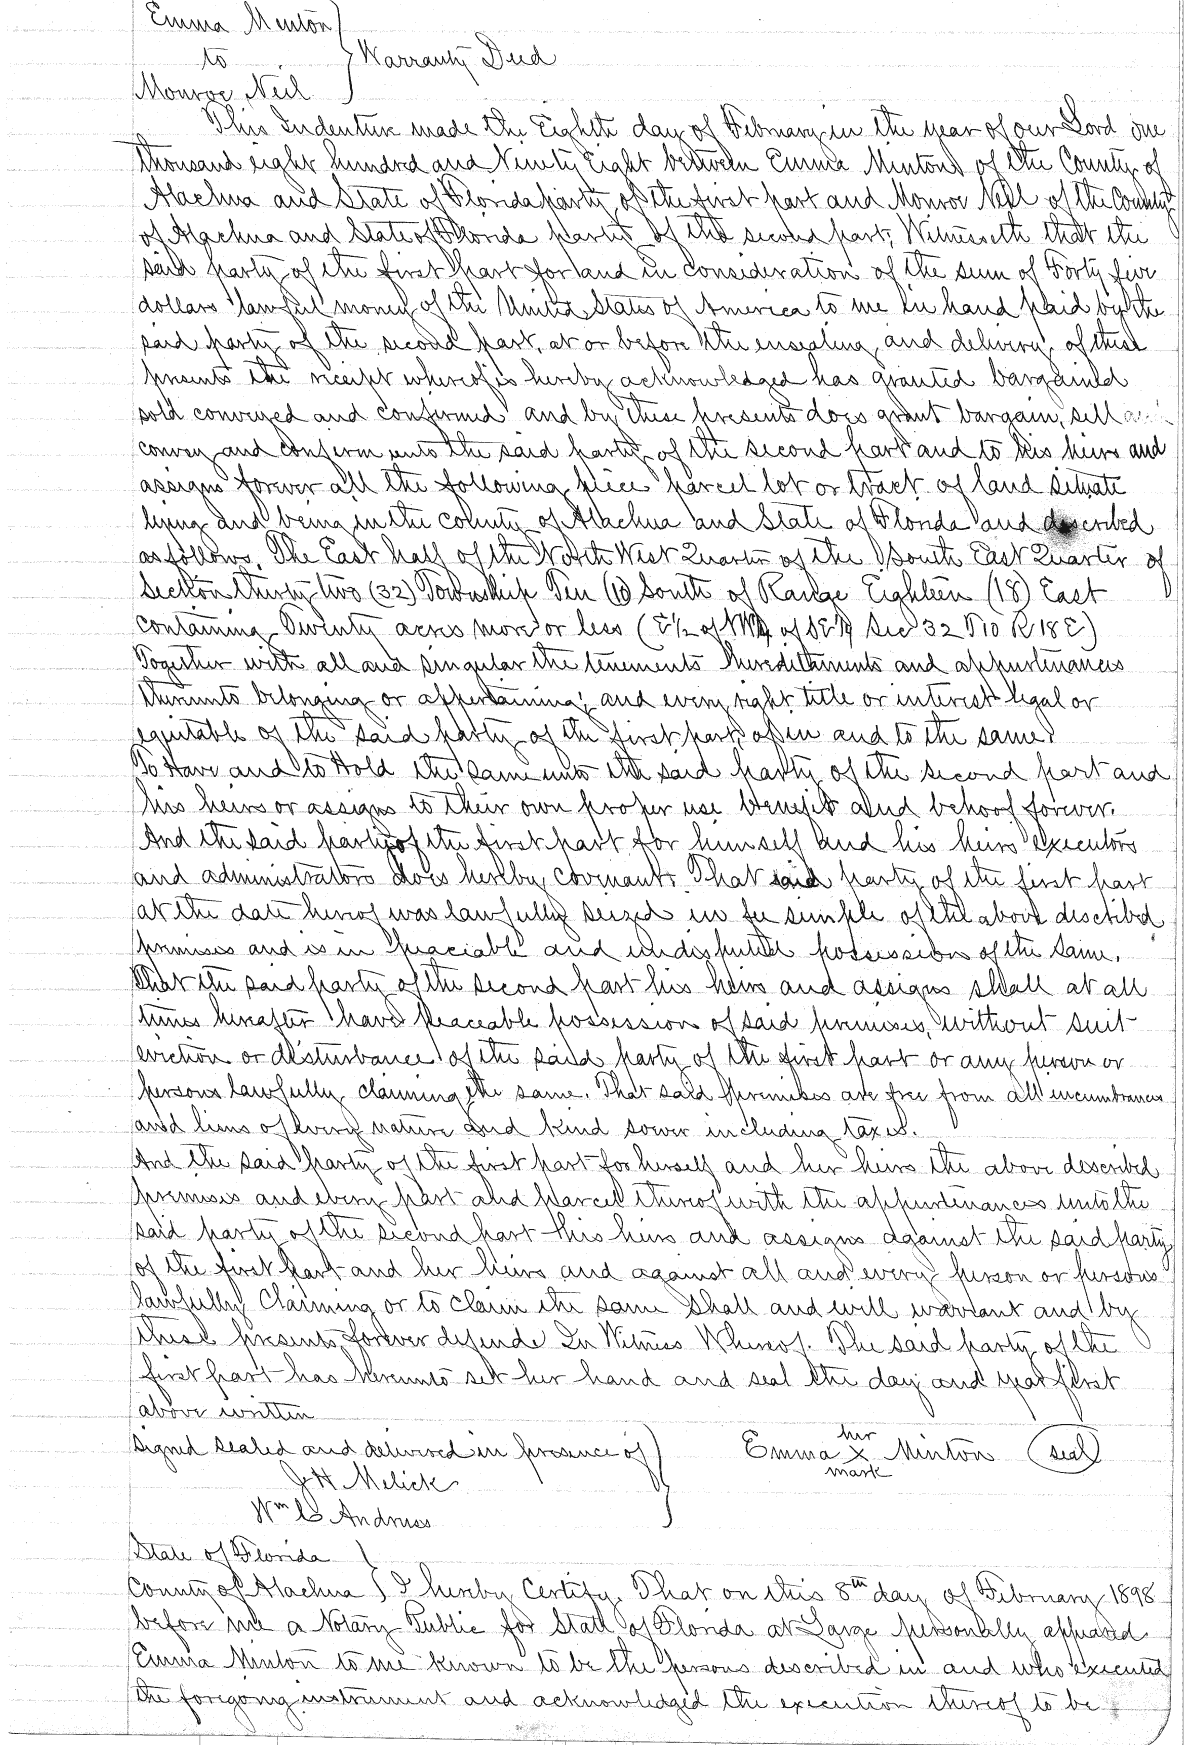 Emma Minton
to
Warranty Deed
Monroe Neil
This Indenture made the Eighth day of February in the year of our Lord one
thousand eight hundred and Ninety Eight between Emma Minton of the County of
Alachua and State of Florida party of the first part and Monroe Neil of the County
of Alachua and State of Florida party of the second part, Witnesseth that the
said party of the first part for and in consideration of the sum of Forty five
dollars lawful money of the United States of America to me in hand paid by the
said party of the second part, at or before the ensealing and delivery of these
presents the receipt whereof is hereby acknowledged has granted bargained
sold conveyed and confirmed and by these presents does grant bargain, sell
convey and confirm unto the said party of the second part and to his heirs and
assigns forever all the following piece parcel lot or tract of land situate
lying and being in the county of Alachua and State of Florida and described
as follows, The East half of the North West Quarter of the South East Quarter of
Section thirty two (32) Township Ten (10) South of Range Eighteen (18) East
containing Twenty acres more or less (E½ of NW¼ of SE¼ Sec 32 T10 R18E)
Together with all and singular the tenements hereditaments and appurtenances
thereunto belonging or appertaining; and every right title or interest legal or
equitable of the said party of the first part, of in and to the same.
To Have and to Hold the same unto the said party of the second part and
his heirs or assigns to their own proper use benefit and behoof forever.
And the said party of the first part for himself and his heirs executors
and administrators does hereby covenant. That said party of the first part
at the date hereof was lawfully seized in fee simple of the above described
premises and is in peaciable and undisputed possession of the same.
That the said party of the second part his heirs and assigns shall at all
times hereafter have peaceable possession of said premises, without suit
eviction or disturbance of the said party of the first part or any person or
persons lawfully claiming the same. That said premises are free from all incumbrances
and liens of every nature and kind sower including taxes.
And the said party of the first part for herself and her heirs the above described
premises and every part and parcel thereof with the appurtenances unto the
said party of the second part his heirs and assigns against the said party
of the first part and her heirs and against all and every person or persons
lawfully Claiming or to claim the same shall and will warrant and by
these presents forever defende In Witness Whereof. The said party of the
first part has hereunto set her hand and seal the day and year first
above written
signed sealed and delivered in presence of
her
Emma X Minton (seal)
mark
J H Melick
Wm C Andruss
State of Florida
County of Alachua } I hereby Certify, That on this 8th day of February 1898
before me a Notary Public for State of Florida at Large personally appeared
Emma Minton to me known to be the persons described in and who executed
the foregoing instrument and acknowledged the execution thereof to be